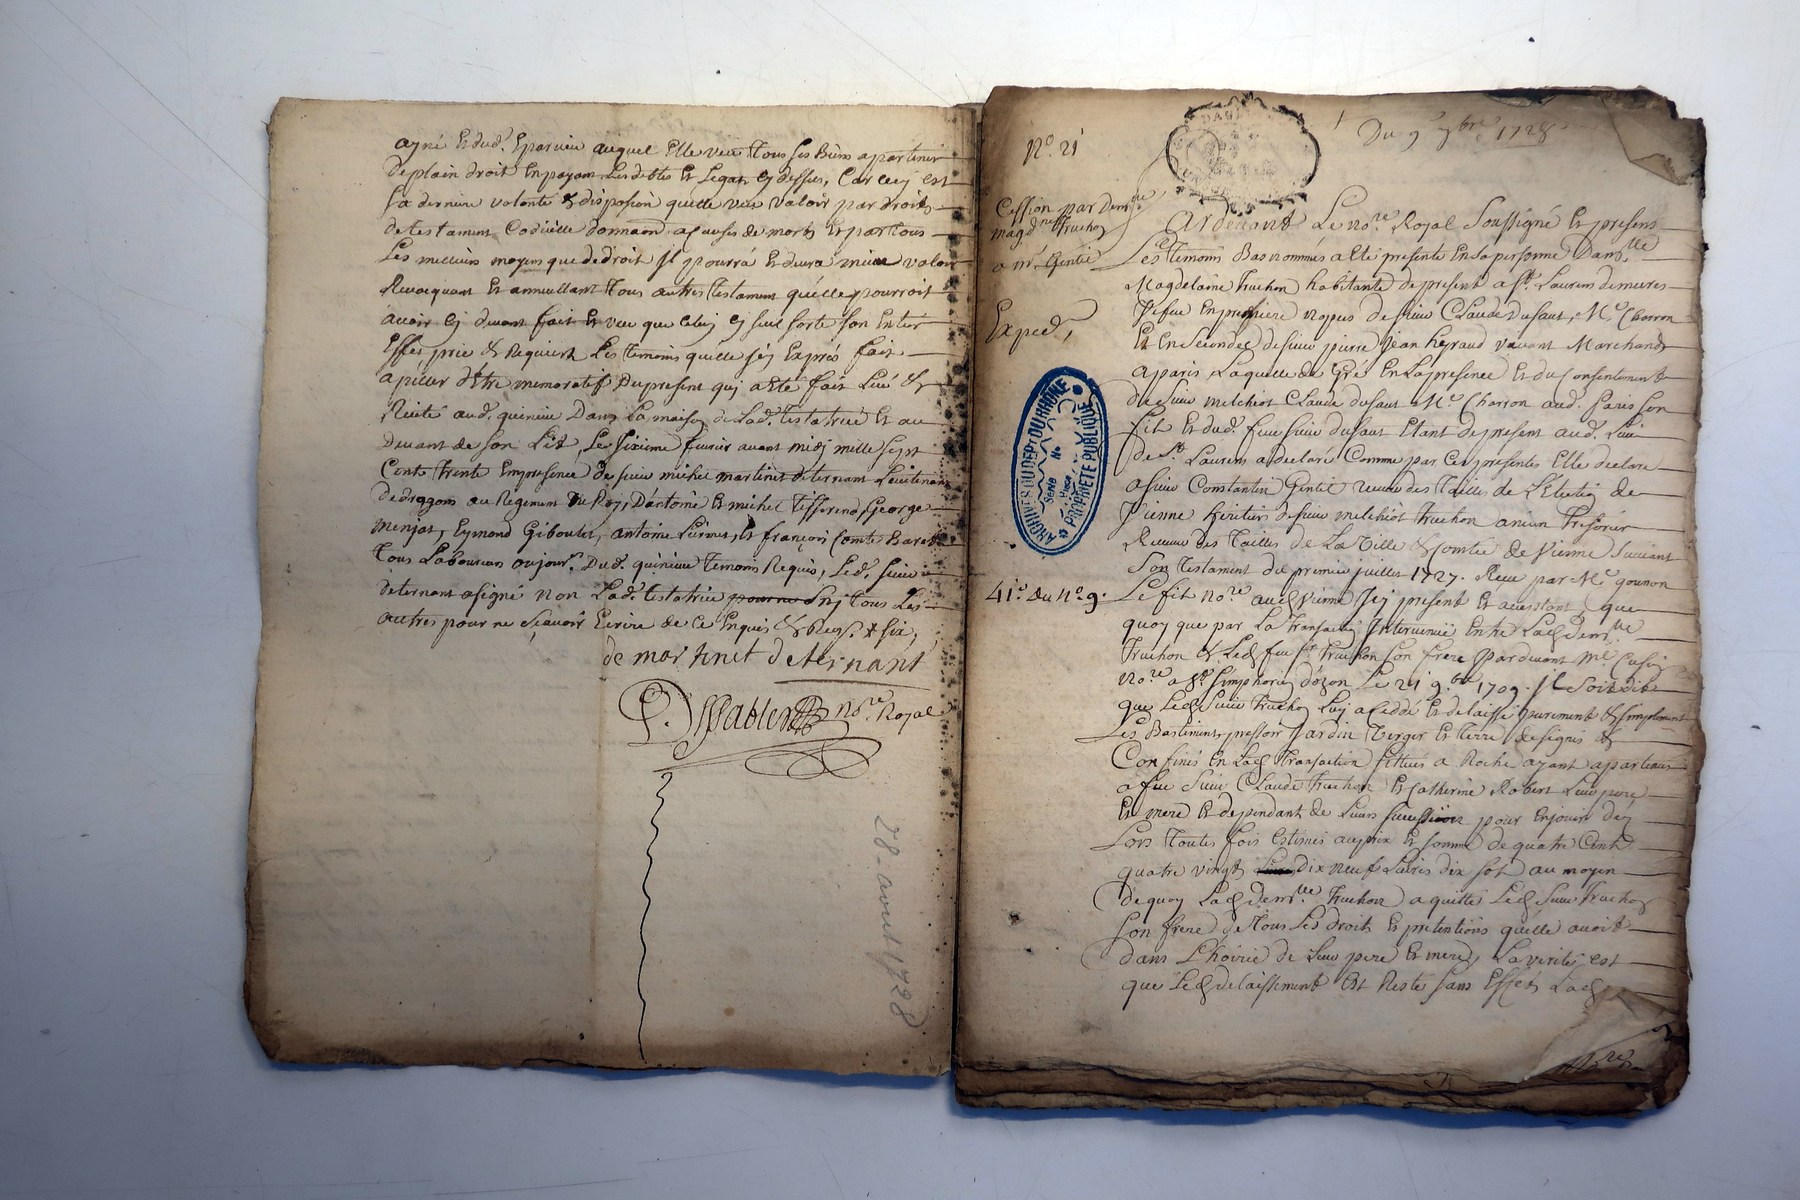 ayné et dud. Eparvier auquel Elle veut tous ses Biens apartenir
de plain droit en payant les debtes et Legats cy dessus, Car cecy est
sa derniere volonté & disposion quelle veut valoir par droits
de testament Codicille donnaôn a causes de morts et par tous
Les meilleurs moyens que de droit Il pourrá et devrá mieux valoir
Revocquant et annullant tous autres testament quelle pourroit
avoir cy devant fait et veu que celuy cy seul sorte son Entier
Effet prie & Requiert Les temoins quelle sy Exprés fait
apeller d'être memoratifs Du present quy a eté fait Leu &
Recité aud. quincieu Dans La maison de Lad. testatrice et au
devant de son Lit, Le sixieme fevrier avant midy mille sept
Cents trente En presence de sieur michel martinet deternant Lieutenant
de dragons au Regiment du Roy, D'antoine et michel tisserend, George
menjat, Eymond Giboulet, antoine et françois Comte Baret
tous Laboureurs dud. quincieu temoins Requis, Led. sieur
deternant a signé non Lad. testatrice pour ne Sny tous Les
autres pour ne sçavoir Ecrire de ce Enquis &
de martinet deternant
nore. Royal
28 avril 1728
Du 9 7bre 1728
No. 21
Cession par Demlle
magdne truchon
a mr. Gentil
Exped.
ARCHIVES DU DEPT DU RHÔNE
Serie
No
PROPRIÉTÉ PUBLIQUE
41e. du No. 9.
Pardevant Le nore. Royal Soussigné et presens
Les temoins Bas nommés a eté presente En sa personne Damlle
Magdelaine truchon habitante de present a St. Laurens de mures
Vefve En premiere nopces de sieur Claude Dusaut, Me. Charron
Et En Secondes de sieur pierre Jean heyraud vivant Marchand
a paris, Laquelle de Gré En la presence et du Consentement
de sieur melchiot Claude dusaut Me. Charron aud. paris son
fils et dud. feu sieur dusaut Etant de present aud. Lieu
de St. Laurens a declaré Comme par ces presentes Elle declare
a sieur Constantin Gentil receveur des tailles de L'Election de
Vienne heritier de sieur melchiot truchon ancien tresorier
Receveur des tailles de La Ville & Comté de Vienne suivant
son testament du premier juillet 1727. Receu par Me. gounon
Le fils nore. aud. Vienne Icy present et acceptant, que
quoy que par La transaction Intervenuë Entre Lad. demlle
truchon & Led. feu sr. truchon son frere pardevant me.
nore. a St. simphorien d'ozon Le 21 9bre 1709. Il soit dit
que Led. sieur truchon Luy a ceddé et delaissé purement & simplement
Les Bastiments, pressoir Jardin Verger et terre designés &
Confinés En Lad. transaction sittués a Roche ayant apartenus
a feu sieur Claude truchon et Catherine Robert Leur pere
et mere et dependant de Leurs succession pour Enjouir dés
Lors toutes fois Estimés au prix et somme de quatre Cent
quatre vingt dix neuf Livres dix sols au moyen
de quoy Lad. demlle. truchon a quitté Led. sieur truchon
son frere de tous Les droits et pretentions quelle avoit
dans L'hoirie de Leur pere et mere, La verité est
que Led. delaissement est Resté sans Effet, Lad.